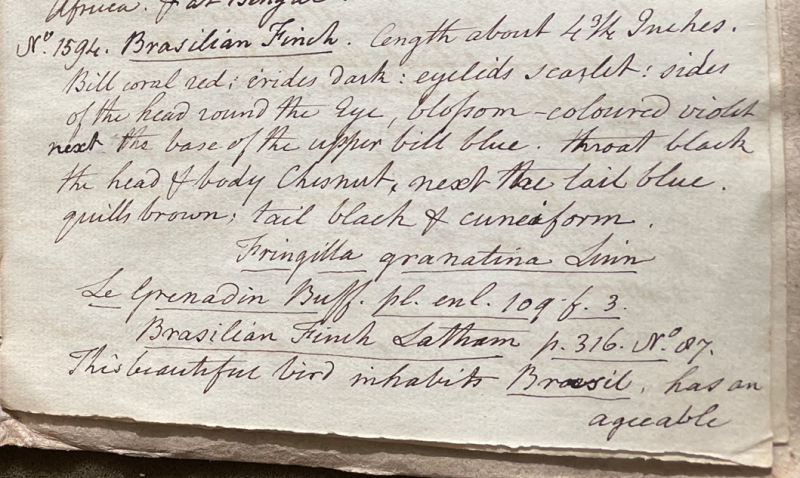 Africa. & at Bengal
Nº. 1594. Brasilian Finch. Length about 4 3/4 Inches.
Bill coral red; irides dark: eyelids scarlet: sides
of the head round the Eye, bloſsom-coloured violet
next the base of the upper bill blue. throat black
the head & body Chesnut, next the tail blue.
quills brown; tail black & cuneiform.
Fringilla granatina Linn
Le Grenadin Buff. pl. enl. 109. f. 3.
Brasilian Finch Latham p. 316. Nº. 87.
This beautiful bird inhabits Brasil, has an
ageeable